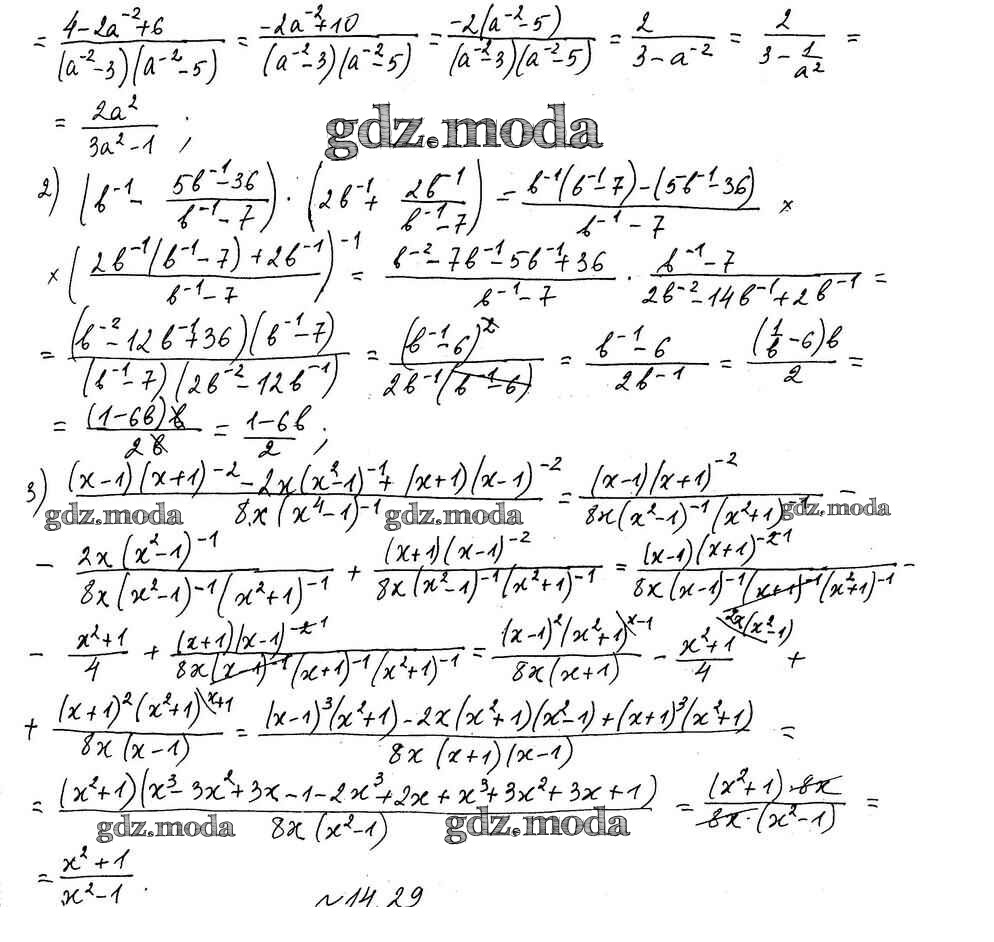 = (4-2a⁻²+6)/((a⁻²-3)(a⁻²-5)) = (-2a⁻²+10)/((a⁻²-3)(a⁻²-5)) = (-2(a⁻²-5))/((a⁻²-3)(a⁻²-5)) = 2/(3-a⁻²) = 2/(3-1/a²) =
= 2a²/(3a²-1) ;
gdz.moda
2) (в⁻¹ - (5в⁻¹-36)/(в⁻¹-7)) · (2в⁻¹ + 2в⁻¹/(в⁻¹-7)) = (в⁻¹(в⁻¹-7)-(5в⁻¹-36))/(в⁻¹-7) ×
× ((2в⁻¹(в⁻¹-7)+2в⁻¹)/(в⁻¹-7))⁻¹ = (в⁻²-7в⁻¹-5в⁻¹+36)/(в⁻¹-7) · (в⁻¹-7)/(2в⁻²-14в⁻¹+2в⁻¹) =
= ((в⁻²-12в⁻¹+36)(в⁻¹-7))/((в⁻¹-7)(2в⁻²-12в⁻¹)) = (в⁻¹-6)²/(2в⁻¹(в⁻¹-6)) = (в⁻¹-6)/(2в⁻¹) = ((1/в-6)в)/2 =
= ((1-6в)в)/(2в) = (1-6в)/2 ;
3) ((x-1)(x+1)⁻²-2x(x²-1)⁻¹+(x+1)(x-1)⁻²)/(8x(x⁴-1)⁻¹) = ((x-1)(x+1)⁻²)/(8x(x²-1)⁻¹(x²+1)⁻¹) -
gdz.moda gdz.moda gdz.moda
- (2x(x²-1)⁻¹)/(8x(x²-1)⁻¹(x²+1)⁻¹) + ((x+1)(x-1)⁻²)/(8x(x²-1)⁻¹(x²+1)⁻¹) = ((x-1)(x+1)⁻²¹)/(8x(x-1)⁻¹(x+1)⁻¹(x²+1)⁻¹) -
- (x²+1)/4 + ((x+1)(x-1)⁻²¹)/(8x(x-1)⁻¹(x+1)⁻¹(x²+1)⁻¹) = ((x-1)²(x²+1)\x-1)/(8x(x+1)) - (x²+1\2x(x²-1))/4 +
+ ((x+1)²(x²+1)\x+1)/(8x(x-1)) = ((x-1)³(x²+1)-2x(x²+1)(x²-1)+(x+1)³(x²+1))/(8x(x+1)(x-1)) =
= ((x²+1)(x³-3x²+3x-1-2x³+2x+x³+3x²+3x+1))/(8x(x²-1)) = ((x²+1)·8x)/(8x·(x²-1)) =
gdz.moda gdz.moda
= (x²+1)/(x²-1) .
№14.29